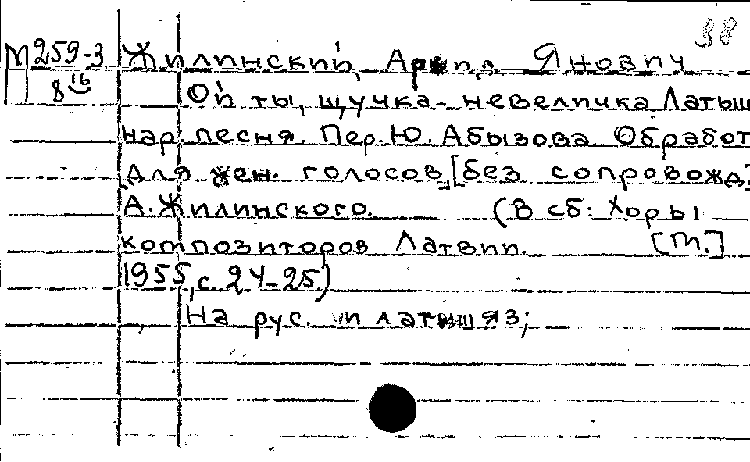 38
М 259-3 Жилинский, Арвид Янович
8 16 Ой ты, щучка-невеличка Латыш
нар песня. Пер. Ю. Абызова Обработ
для жен. голосов [без сопровожд]
А. Жилинского. (В сб: Хоры
композиторов Латвии. [М.]
1955, с. 24-25)
На рус. и латыш яз;